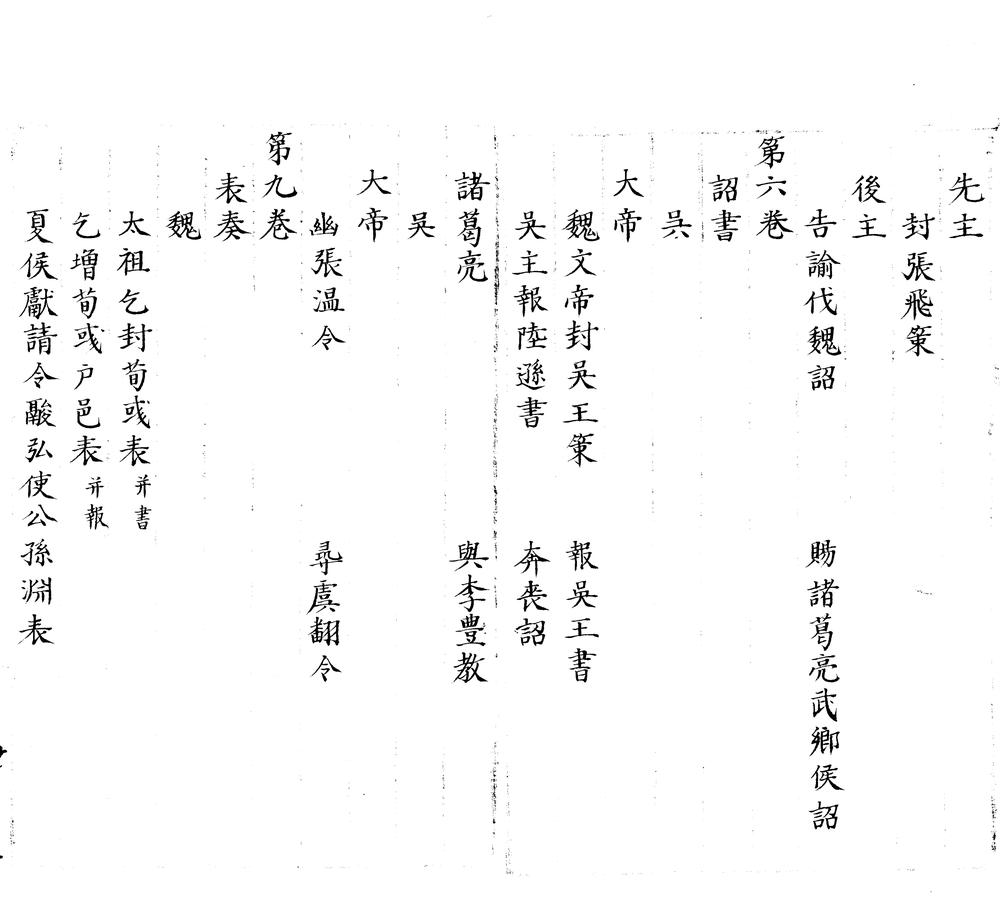 先主
封張飛策
後主
告諭伐魏詔　賜諸葛亮武鄉侯詔
第六卷
詔書
吳
大帝
魏文帝封吳王策　報吳王書
吳主報陸遜書　奔喪詔
諸葛亮
與李豊教
吳
大帝
幽張温令　尋虞翻令
第九卷
表奏
魏
太祖乞封荀彧表并書
乞增荀彧户邑表并報
夏侯獻請令骰弘使公孫淵表